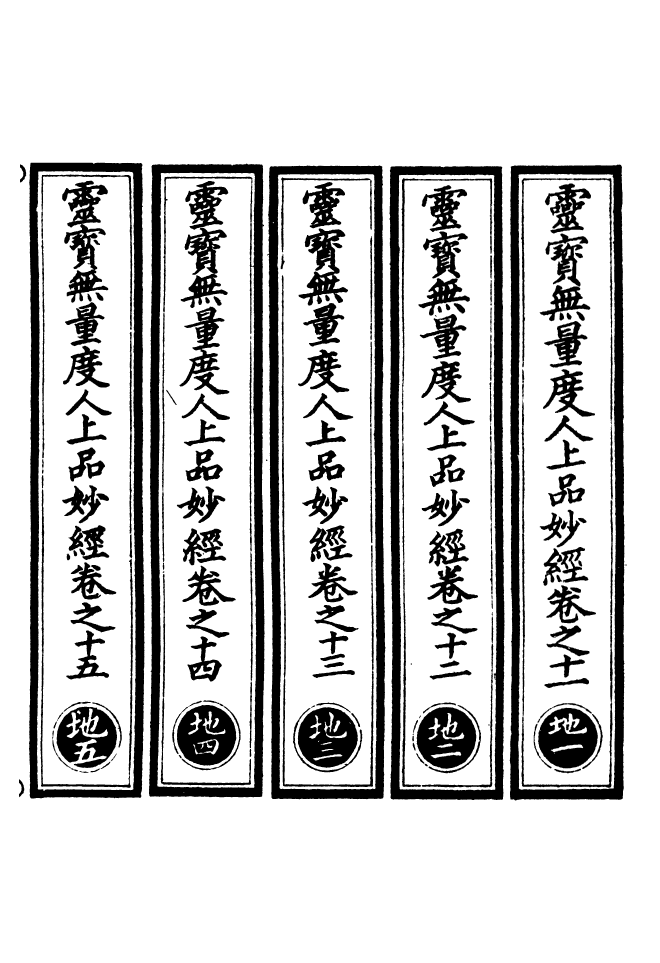 靈寶無量度人上品妙經卷之十一
地一
靈寶無量度人上品妙經卷之十二
地二
靈寶無量度人上品妙經卷之十三
地三
靈寶無量度人上品妙經卷之十四
地四
靈寶無量度人上品妙經卷之十五
地五